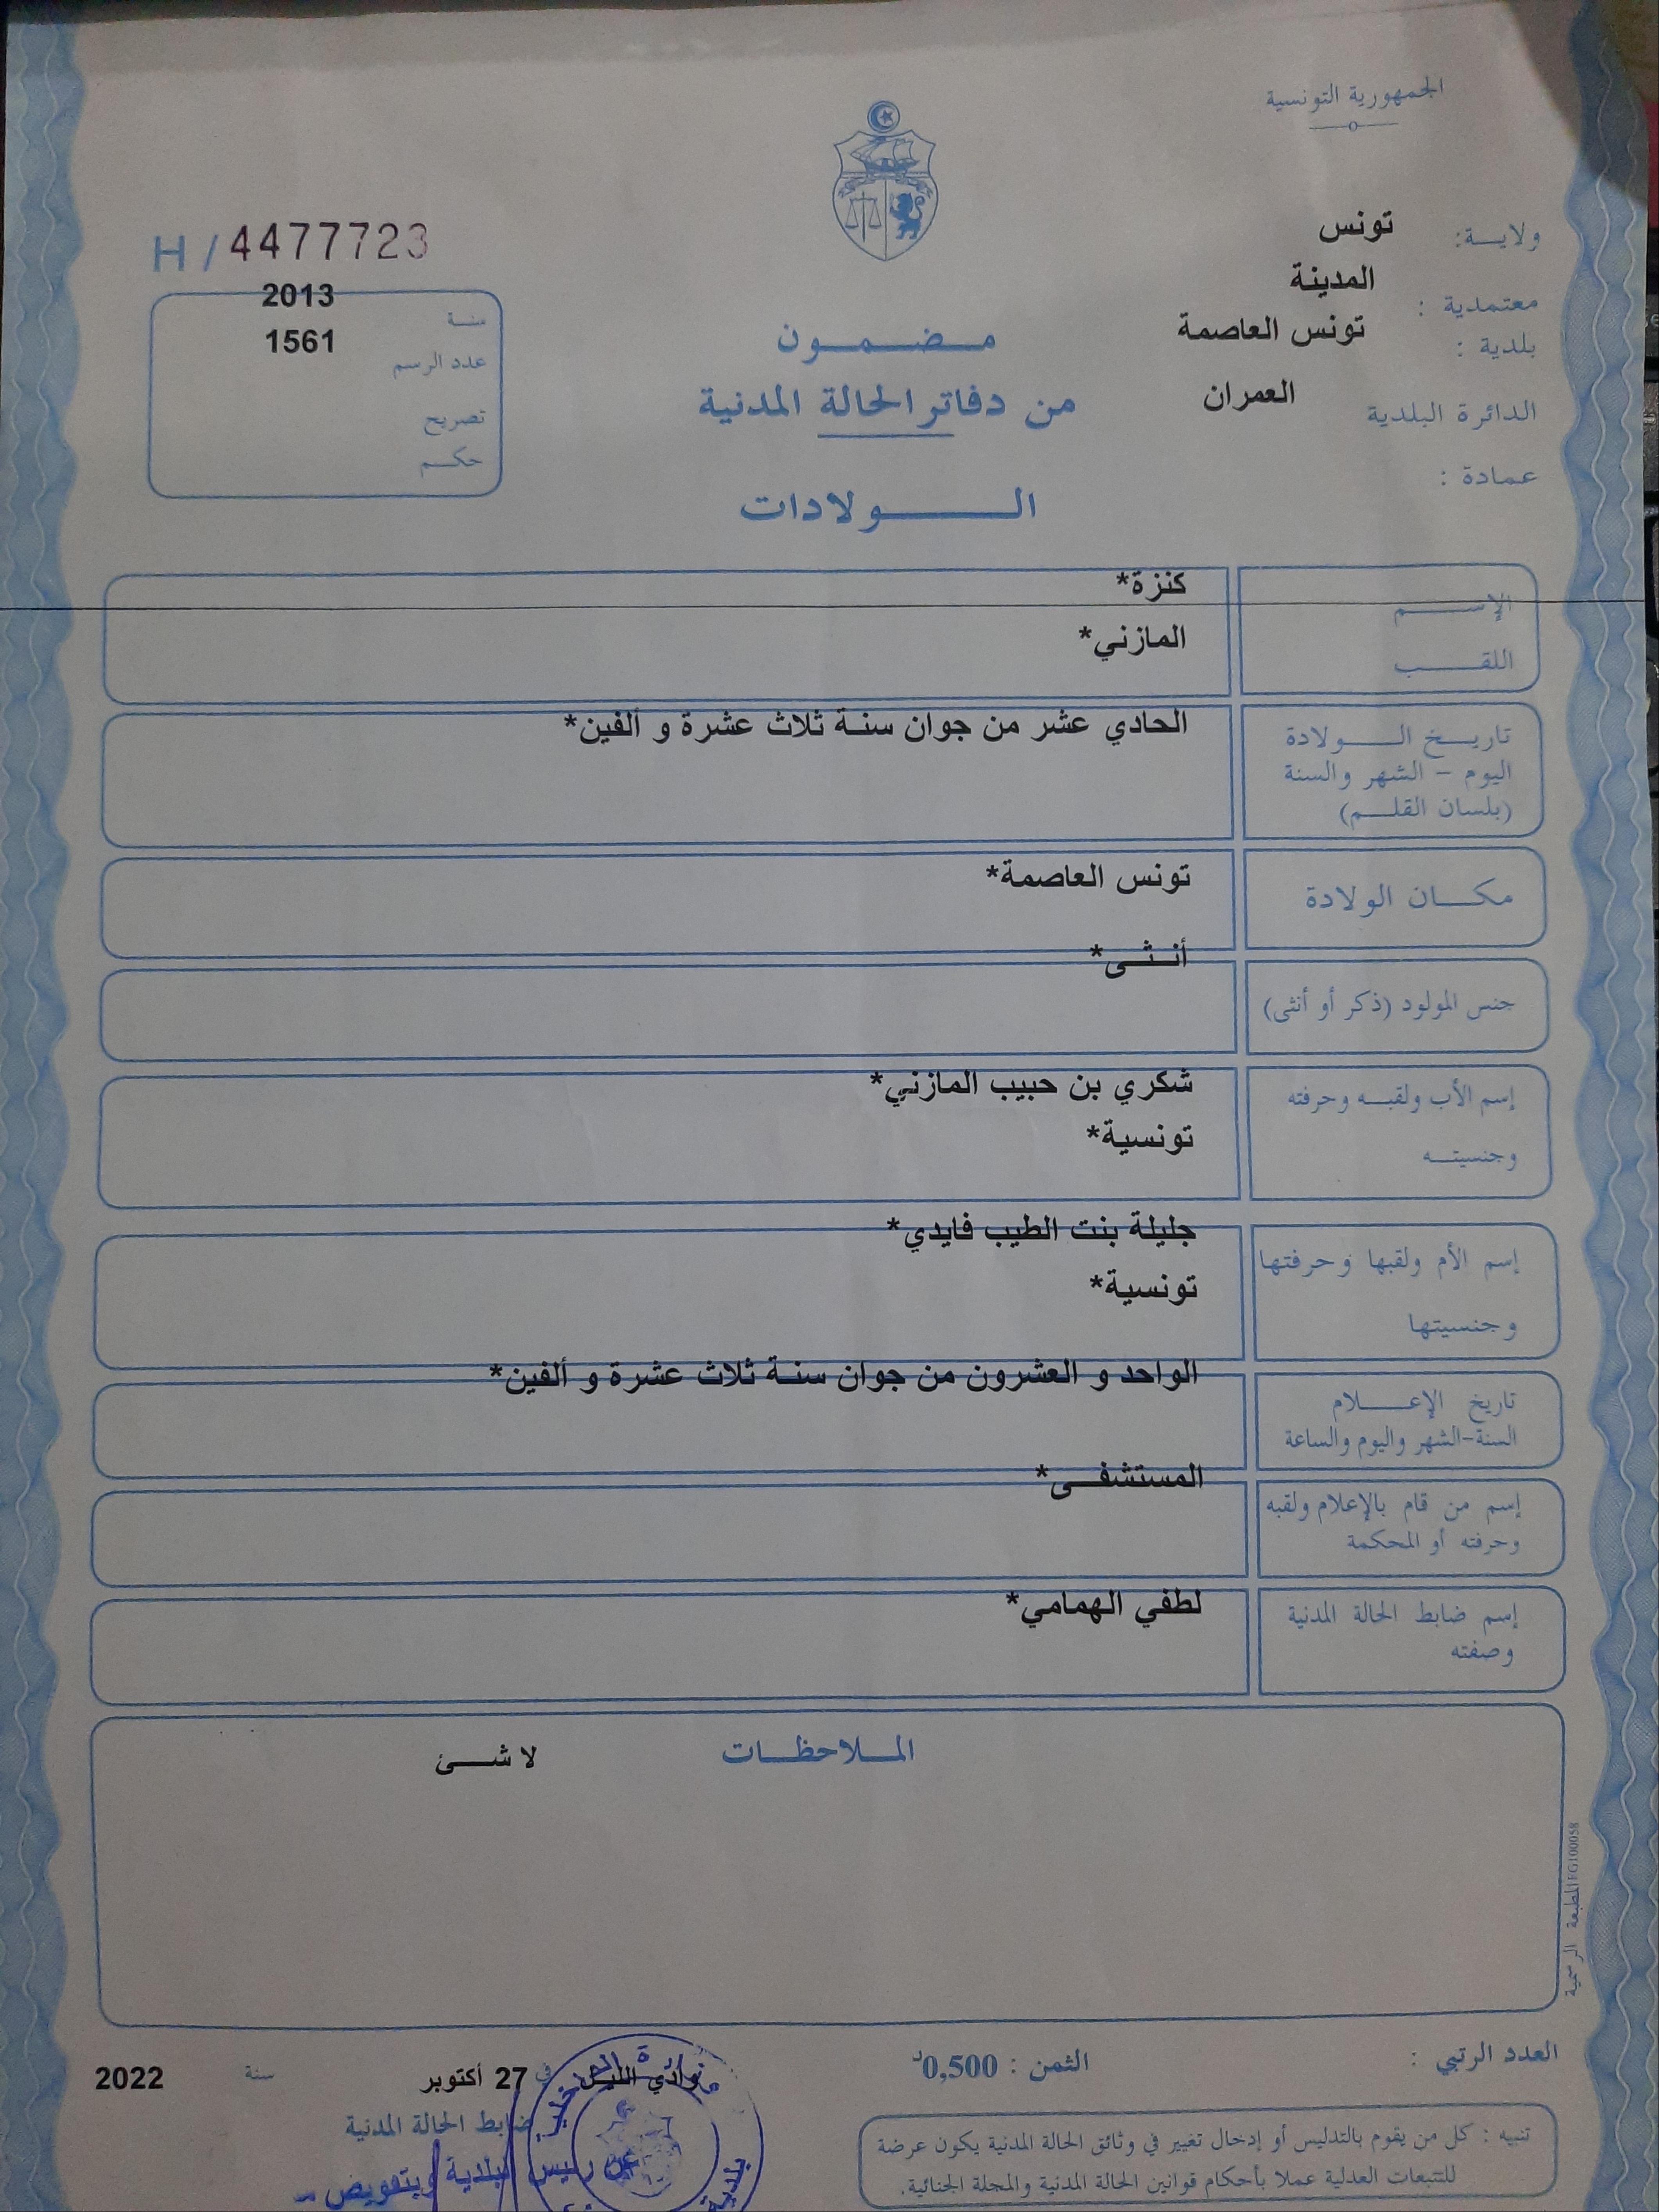 الجمهورية التونسية
ولايـــة: تونس
معتمدية : المدينة
بلدية : تونس العاصمة
الدائرة البلدية العمران
عمادة :
مـــضـــمـــون
من دفاتر الحالة المدنية
الـــــولادات
H / 4477723
سنـة 2013
عدد الرسم 1561
تصريح
حكـــم
الإســـــم كنزة*
اللقـــــب المازني*
تاريـــخ الـــــولادة
اليوم – الشهر والسنة
(بلسان القلـــم)
الحادي عشر من جوان سنة ثلاث عشرة و ألفين*
مكـــان الولادة تونس العاصمة*
جنس المولود (ذكر أو أنثى) أنـثـى*
إسم الأب ولقبــه وحرفته
وجنسيتــه
شكري بن حبيب المازني*
تونسية*
إسم الأم ولقبها وحرفتها
وجنسيتها
جليلة بنت الطيب فايدي*
تونسية*
تاريخ الإعـــــلام
السنة-الشهر واليوم والساعة
الواحد و العشرون من جوان سنة ثلاث عشرة و ألفين*
إسم من قام بالإعلام ولقبه
وحرفته أو المحكمة
المستشفـــى*
إسم ضابط الحالة المدنية
وصفته
لطفي الهمامي*
المـــلاحظـــات
لا شـــئ
المطبعة الرسمية FG100058
العدد الرتبي :
الثمن : 0,500د
وادي الليل في 27 أكتوبر سنة 2022
ضابط الحالة المدنية
عن رئيس البلدية وبتفويض
تنبيه : كل من يقوم بالتدليس أو إدخال تغيير في وثائق الحالة المدنية يكون عرضة
للتتبعات العدلية عملا بأحكام قوانين الحالة المدنية والمجلة الجنائية.